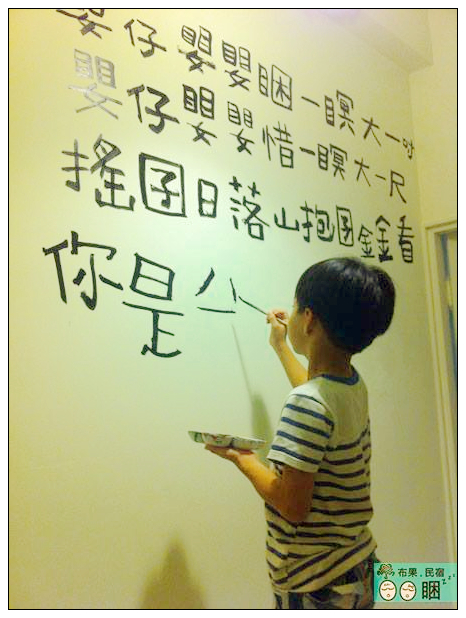 嬰仔嬰嬰睏一暝大一吋
嬰仔嬰嬰惜一暝大一尺
搖囝日落山抱囝金金看
你是
布果.民宿
睏